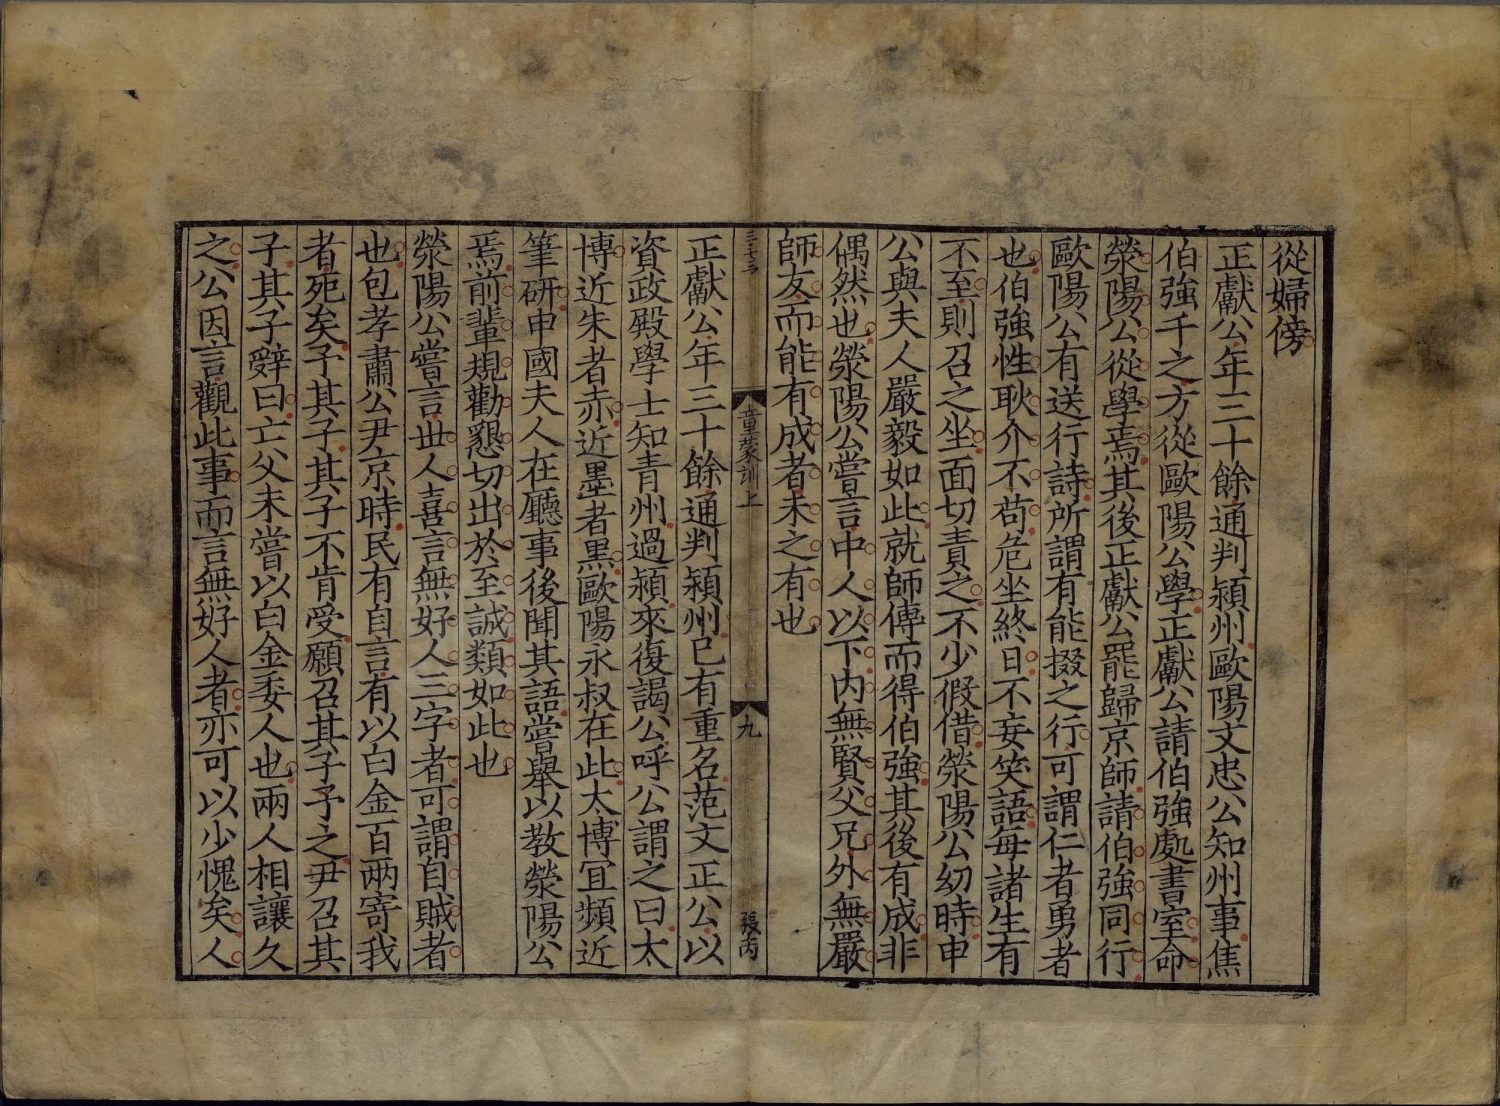 從婦傍
正獻公年三十餘通判潁州歐陽文忠公知州事焦
伯強千之方從歐陽公學正獻公請伯強處書室命
滎陽公從學焉其後正獻公罷歸京師請伯強同行
歐陽公有送行詩所謂有能掇之行可謂仁者勇者
也伯強性耿介不苟危坐終日不妄笑語每諸生有
不至則召之坐面切責之不少假借滎陽公幼時申
公與夫人嚴毅如此就師傅而得伯強其後有成非
偶然也滎陽公嘗言中人以下內無賢父兄外無嚴
師友而能有成者未之有也
童蒙訓上
九
張丙
正獻公年三十餘通判潁州已有重名范文正公以
資政殿學士知青州過潁來復謁公呼公謂之曰太
博近朱者赤近墨者黑歐陽永叔在此太博宜頻近
筆研申國夫人在廳事後聞其語嘗舉以教滎陽公
焉前輩規勸懇切出於至誠類如此也
滎陽公嘗言世人喜言無好人三字者可謂自賊者
也包孝肅公尹京時民有自言有以白金百兩寄我
者死矣予其子其子不肯受願召其子予之尹召其
子其子辭曰亡父未嘗以白金委人也兩人相讓久
之公因言觀此事而言無好人者亦可以少愧矣人